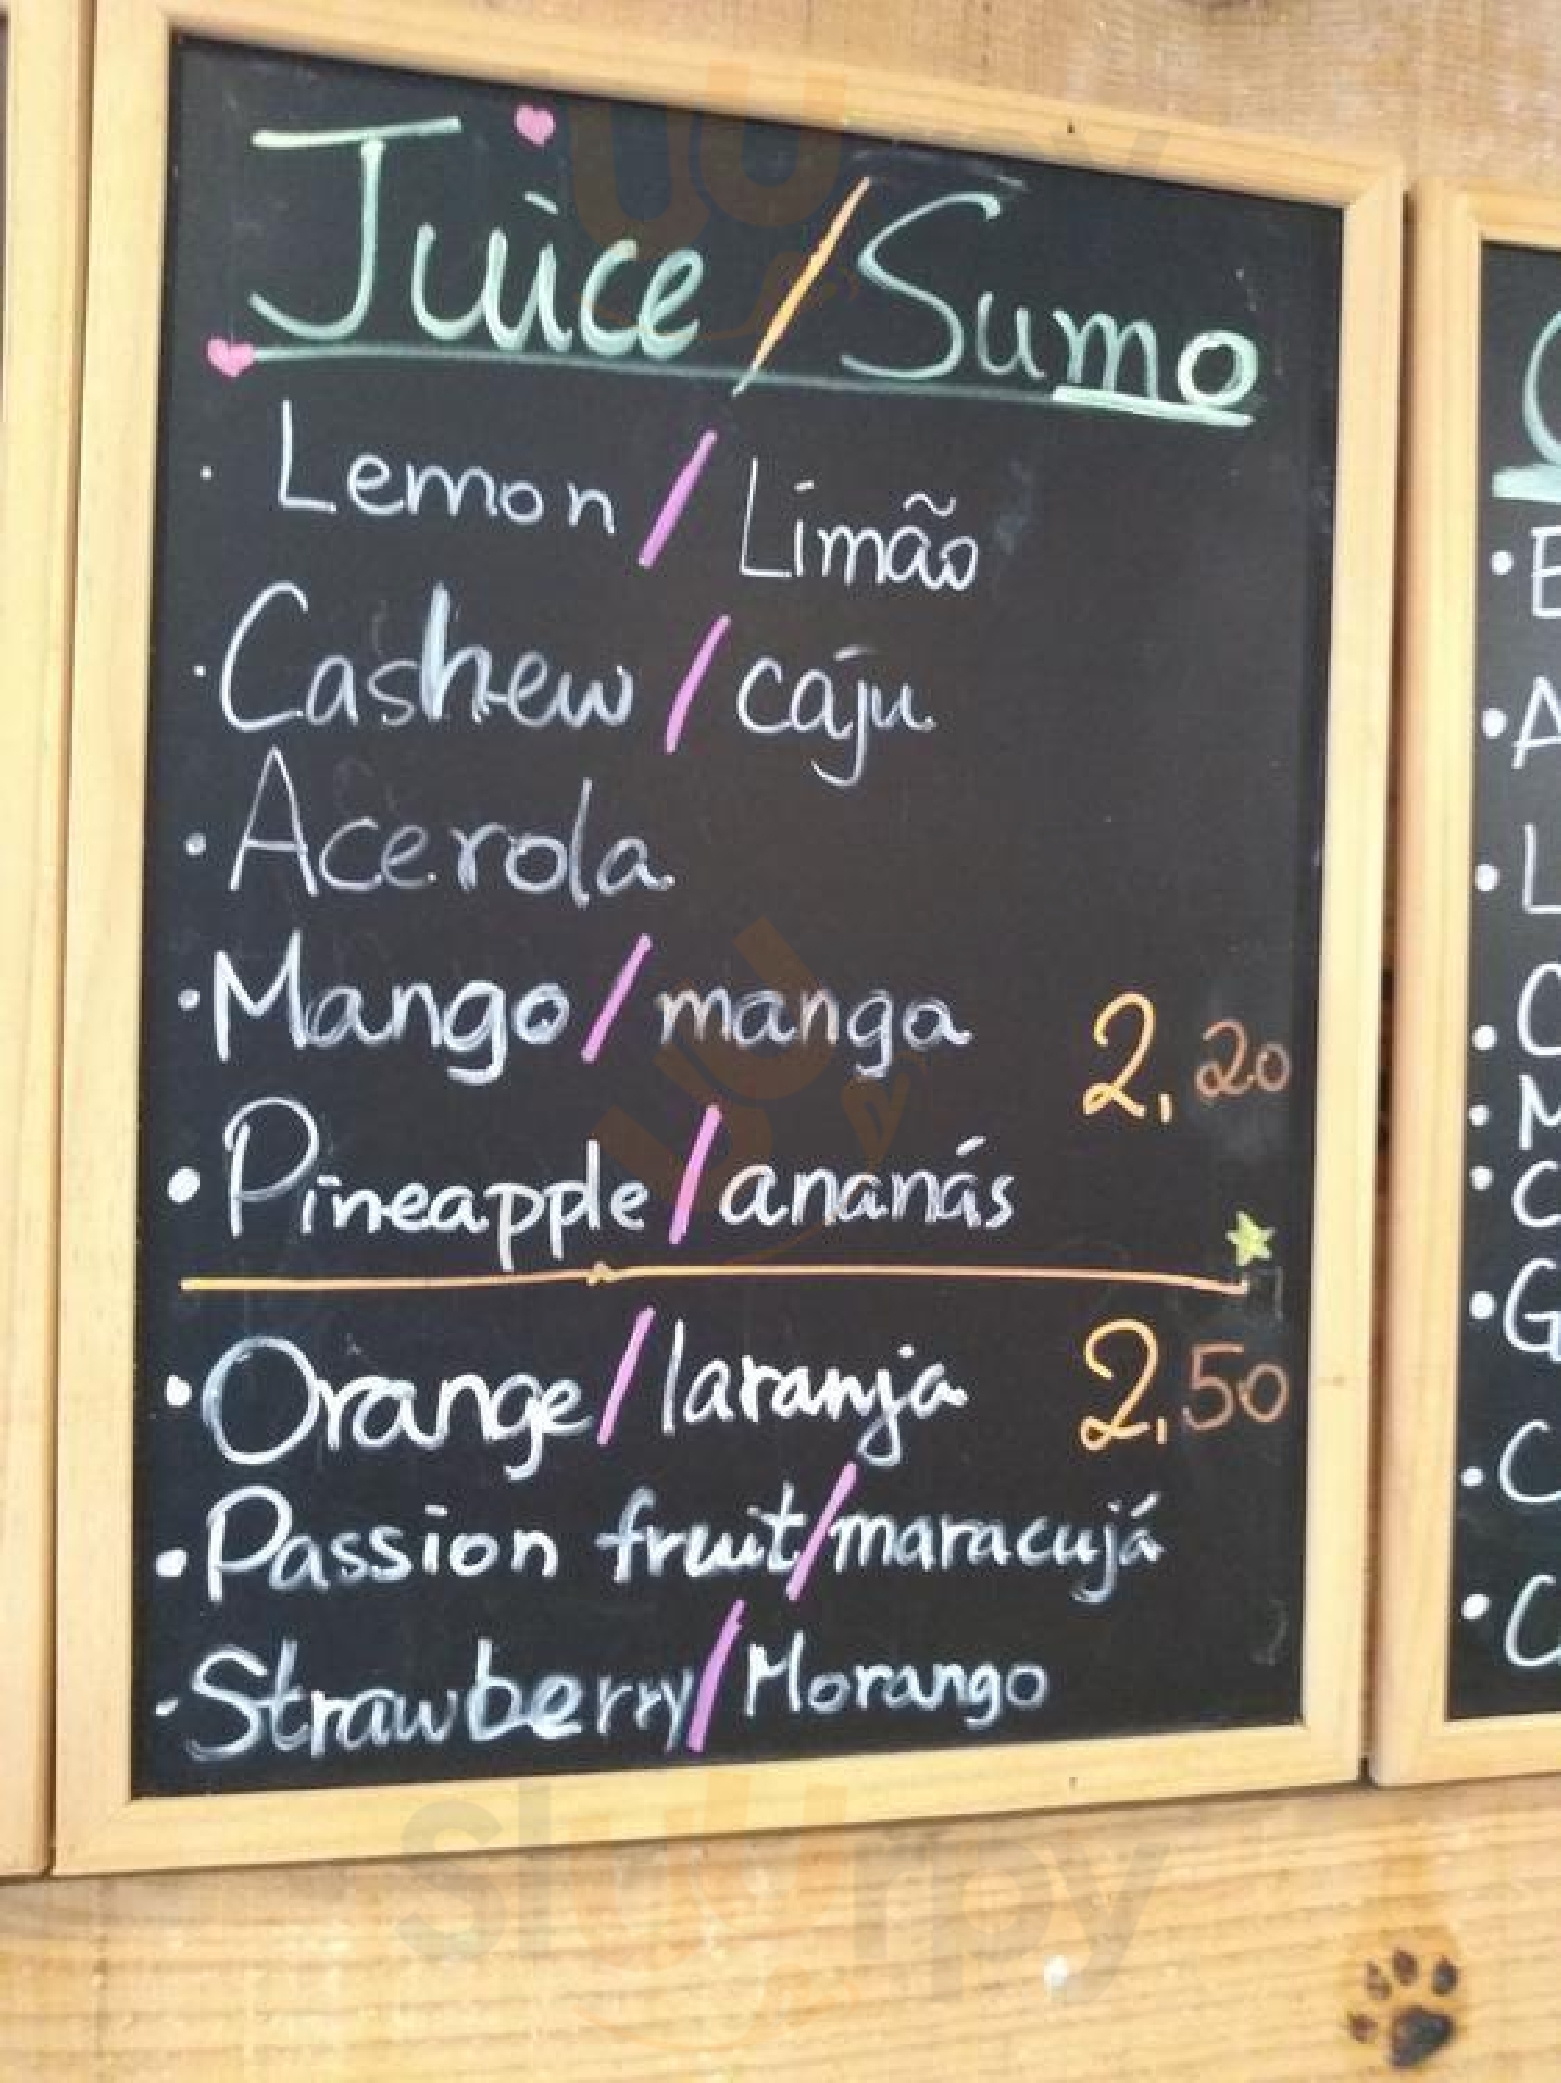 Juice / Sumo
· Lemon / Limão
· Cashew / caju
· Acerola
· Mango / manga 2,20
· Pineapple / ananás
· Orange / laranja 2,50
· Passion fruit / maracujá
· Strawberry / Morango
sluurpy